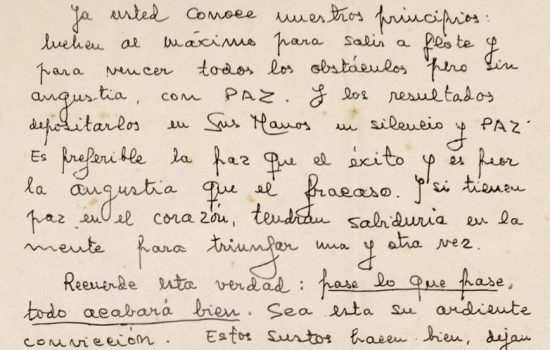 Ya usted conoce nuestros principios:
luchen al máximo para salir a flote y
para vencer todos los obstáculos pero sin
angustia, con PAZ. Y los resultados
depositarlos en Sus Manos en silencio y PAZ.
Es preferible la paz que el éxito y es peor
la angustia que el fracaso. Y si tienen
paz en el corazón, tendrán sabiduría en la
mente para triunfar una y otra vez.
Recuerde esta verdad: pase lo que pase,
todo acabará bien. Sea esta su ardiente
convicción. Estos sustos hacen bien, dejan